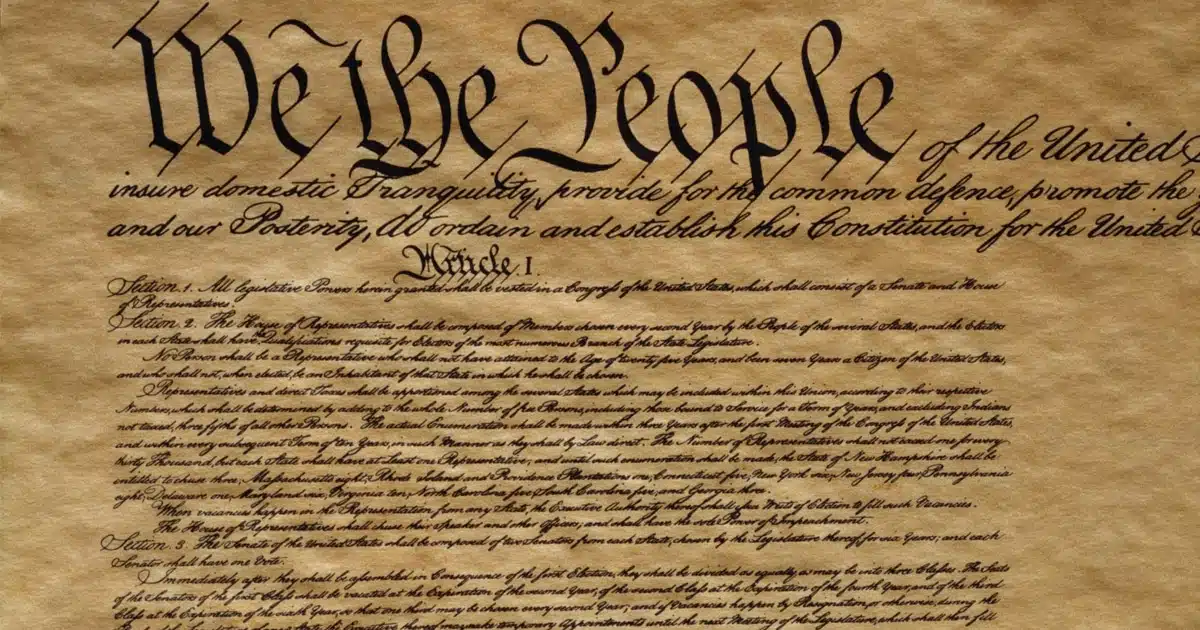 We the People of the United
insure domestic Tranquility, provide for the common defence, promote the
and our Posterity, do ordain and establish this Constitution for the United
Article. I.
Section. 1. All legislative Powers herein granted shall be vested in a Congress of the United States, which shall consist of a Senate and House
of Representatives.
Section. 2. The House of Representatives shall be composed of Members chosen every second Year by the People of the several States, and the Electors
in each State shall have the Qualifications requisite for Electors of the most numerous Branch of the State Legislature.
No Person shall be a Representative who shall not have attained to the Age of twenty five Years, and been seven Years a Citizen of the United States,
and who shall not, when elected, be an Inhabitant of that State in which he shall be chosen.
Representatives and direct Taxes shall be apportioned among the several States which may be included within this Union, according to their respective
Numbers, which shall be determined by adding to the whole Number of free Persons, including those bound to Service for a Term of Years, and excluding Indians
not taxed, three fifths of all other Persons. The actual Enumeration shall be made within three Years after the first Meeting of the Congress of the United States,
and within every subsequent Term of ten Years, in such Manner as they shall by Law direct. The Number of Representatives shall not exceed one for every
thirty Thousand, but each State shall have at Least one Representative; and until such enumeration shall be made, the State of New Hampshire shall be
entitled to chuse three, Massachusetts eight, Rhode Island and Providence Plantations one, Connecticut five, New York six, New Jersey four, Pennsylvania
eight, Delaware one, Maryland six, Virginia ten, North Carolina five, South Carolina five, and Georgia three.
When vacancies happen in the Representation from any State, the Executive Authority thereof shall issue Writs of Election to fill such Vacancies.
The House of Representatives shall chuse their Speaker and other Officers; and shall have the sole Power of Impeachment.
Section. 3. The Senate of the United States shall be composed of two Senators from each State, chosen by the Legislature thereof, for six Years; and each
Senator shall have one Vote.
Immediately after they shall be assembled in Consequence of the first Election, they shall be divided as equally as may be into three Classes. The Seats
of the Senators of the first Class shall be vacated at the Expiration of the second Year, of the second Class at the Expiration of the fourth Year, and of the third
Class at the Expiration of the sixth Year, so that one third may be chosen every second Year; and if Vacancies happen by Resignation, or otherwise, during the
State, the Executive thereof may make temporary Appointments until the next Meeting of the Legislature, which shall then fill